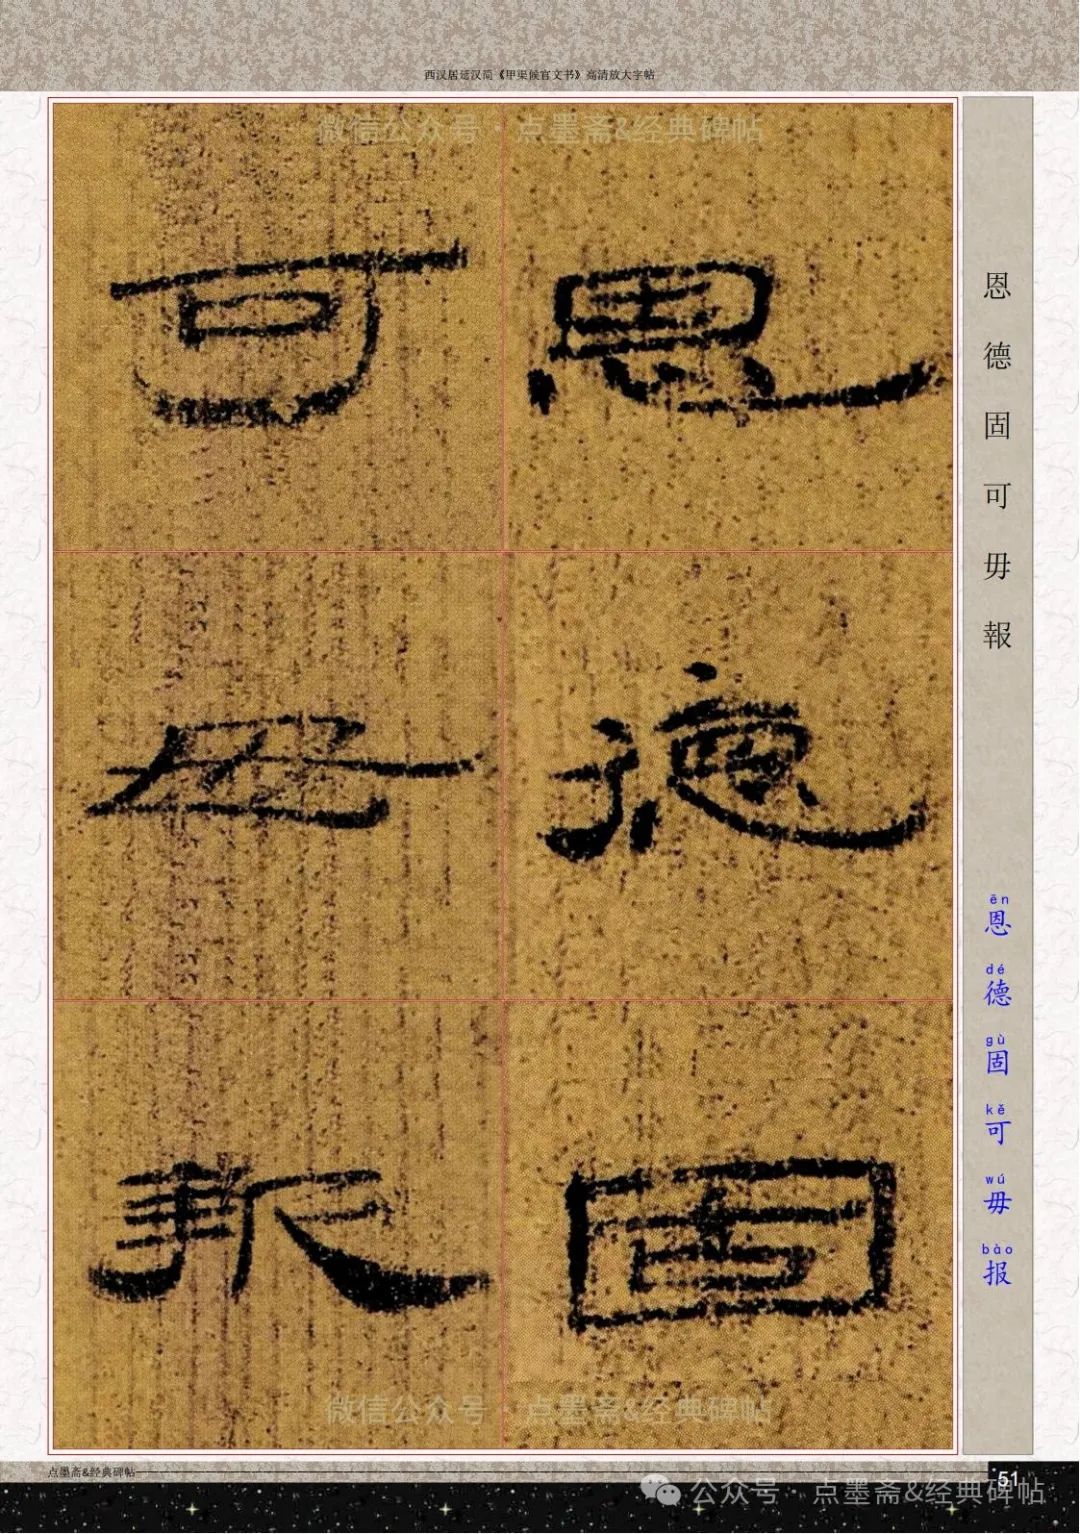 西汉居延汉简《甲渠候官文书》高清放大字帖
微信公众号·点墨斋&经典碑帖
恩德固
可毋報
恩德固可毋報
ēn dé gù kě wú bào
恩德固可毋报
微信公众号·点墨斋&经典碑帖
点墨斋&经典碑帖
51
公众号·点墨斋&经典碑帖